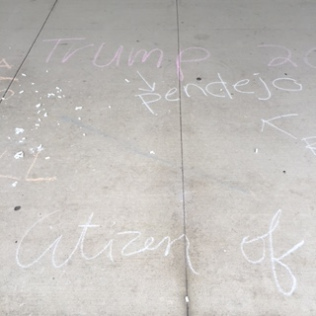 Trump 20
pendejo
Citizen of